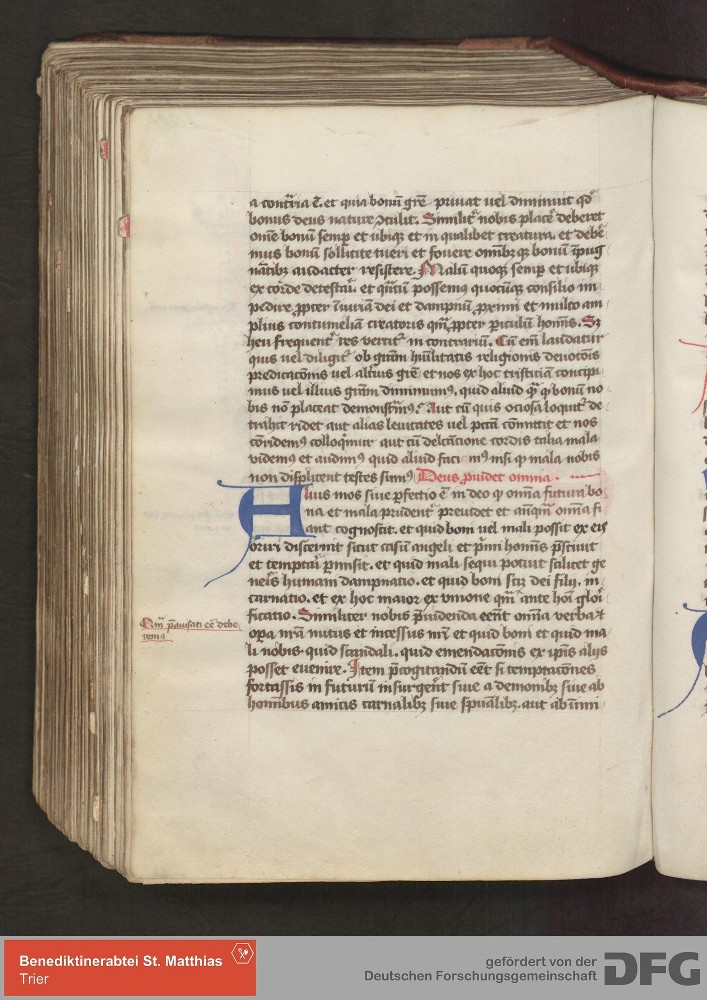 a cont͛ria ē. et quia bonū grē priuat uel diminuit qd̛
bonus deus nature ↄtulit. Similit͛ nobis placē deberet
om̄e bonū semꝑ et ubiqꝫ et in qualibet creatura. et debe
mus bonū sollicite tueri et fouere om̄ibꝫqꝫ bonū īpug
nātibꝫ audacter resistere. Malū quoqꝫ semꝑ et ubiqꝫ
ex corde detestari et possemꝰ quocūqꝫ consilio im
pedire ꝓpter iniuriā dei et dampnū ꝓximi et multo am
plius contumeliā creatoris qm̄ ꝓpter ꝑiculū hoīs. Sꝫ
heu frequent͛ res vertit͛ in contrariū. Cū em̄ laudatur
quis uel diligit͛ ob grām hūilitatis religionis deuotōis
predicacōnis uel altius grē et nos ex hoc tristiciā concipi
mus uel illius grām diminuimꝰ. quid aliud bonū no
bis nō placeat demonst͛mꝰ? Aut cū quis ociosa loquit͛ de
trahit ridet aut alias leuitates uel pctā cōmittit et nos
corridemꝰ colloqimur aut cū delcātione cordis talia mala
videmꝰ et audimꝰ quid aliud facimꝰ nisi qꝫ mala nobis
non displicent testes sumꝰ Deus ꝓuidet omnia.
Alius mos siue ꝑfectio ē in deo qꝫ om̄ia futura bo
na et mala prudent͛ preuidet et anīqm̄ om̄ia fi
ant cognoscit. et quid boni uel mali possit ex eis
oriri discernit sicut casū angeli et p̄mi hominis p̄sciuit
et temptari ꝑmisit. et quid mali sequi potuit scilicet ge
neris humani dampnatio. et quid boni sciꝫ dei filij in
carnatio. et ex hoc maior ex vnione qm̄ ante hoī glori
ficatio. Similiter nobis p̄uidenda eēnt om̄ia verba et
opa nrā nutus et incessus nrī et quid boni et quid ma
li nobis. quid scandali. quid emendacōis ex ip̄is alijs
posset euenire. Item p̄cogitandū eēt si temptacōnes
fortassis in futurū insurgent siue a demonibꝫ siue ab
hominibus amicis carnalibꝫ siue sp̄ualibꝫ. aut ab inimi
Qm̄ p̄auisati eē debe
remꝰ
Benediktinerabtei St. Matthias
Trier
gefördert von der
Deutschen Forschungsgemeinschaft
DFG